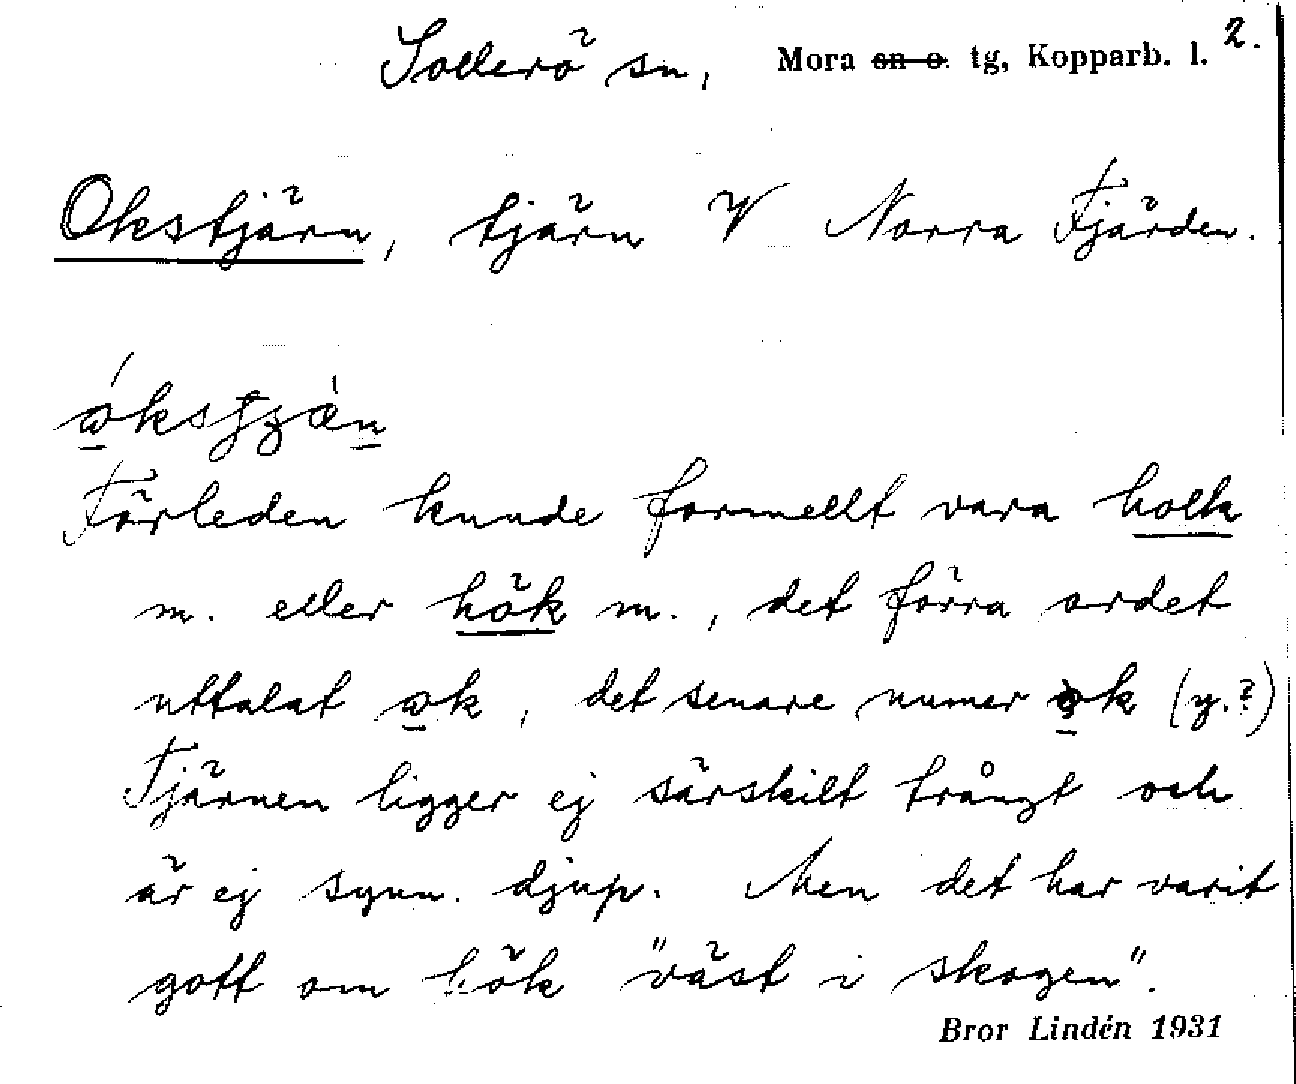 Sollerö sn, Mora sn o. tg, Kopparb. l. 2.
Okstjärn, tjärn V Norra Fjärden.
Förleden kunde formellt vara holk
m. eller hök m., det förra ordet
uttalat ωk, det senare numer ωk (y.?)
Tjärnen ligger ej särskilt trångt och
är ej synn. djup. Men det har varit
gott om hök "väst i skogen".
Bror Lindén 1931